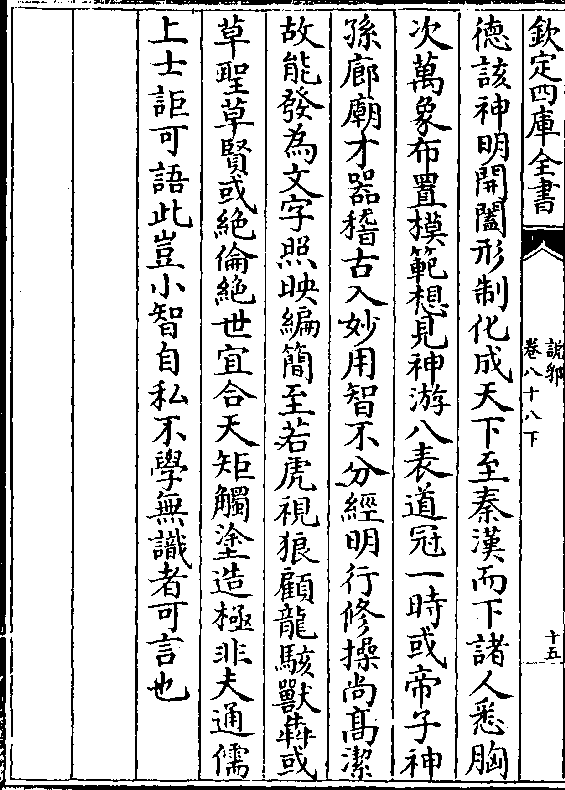 欽定四庫全書
說郛
卷八十八下
十五
德該神明開闔形制化成天下至秦漢而下諸人悉胸
次萬象布置模範想見神游八表道冠一時或帝子神
孫廊廟才器稽古入妙用智不分經明行修操尚高潔
故能發為文字照映編簡至若虎視狼顧龍駭獸犇或
草聖草賢或絕倫絕世宜合天矩觸塗造極非夫通儒
上士詎可語此豈小智自私不學無識者可言也